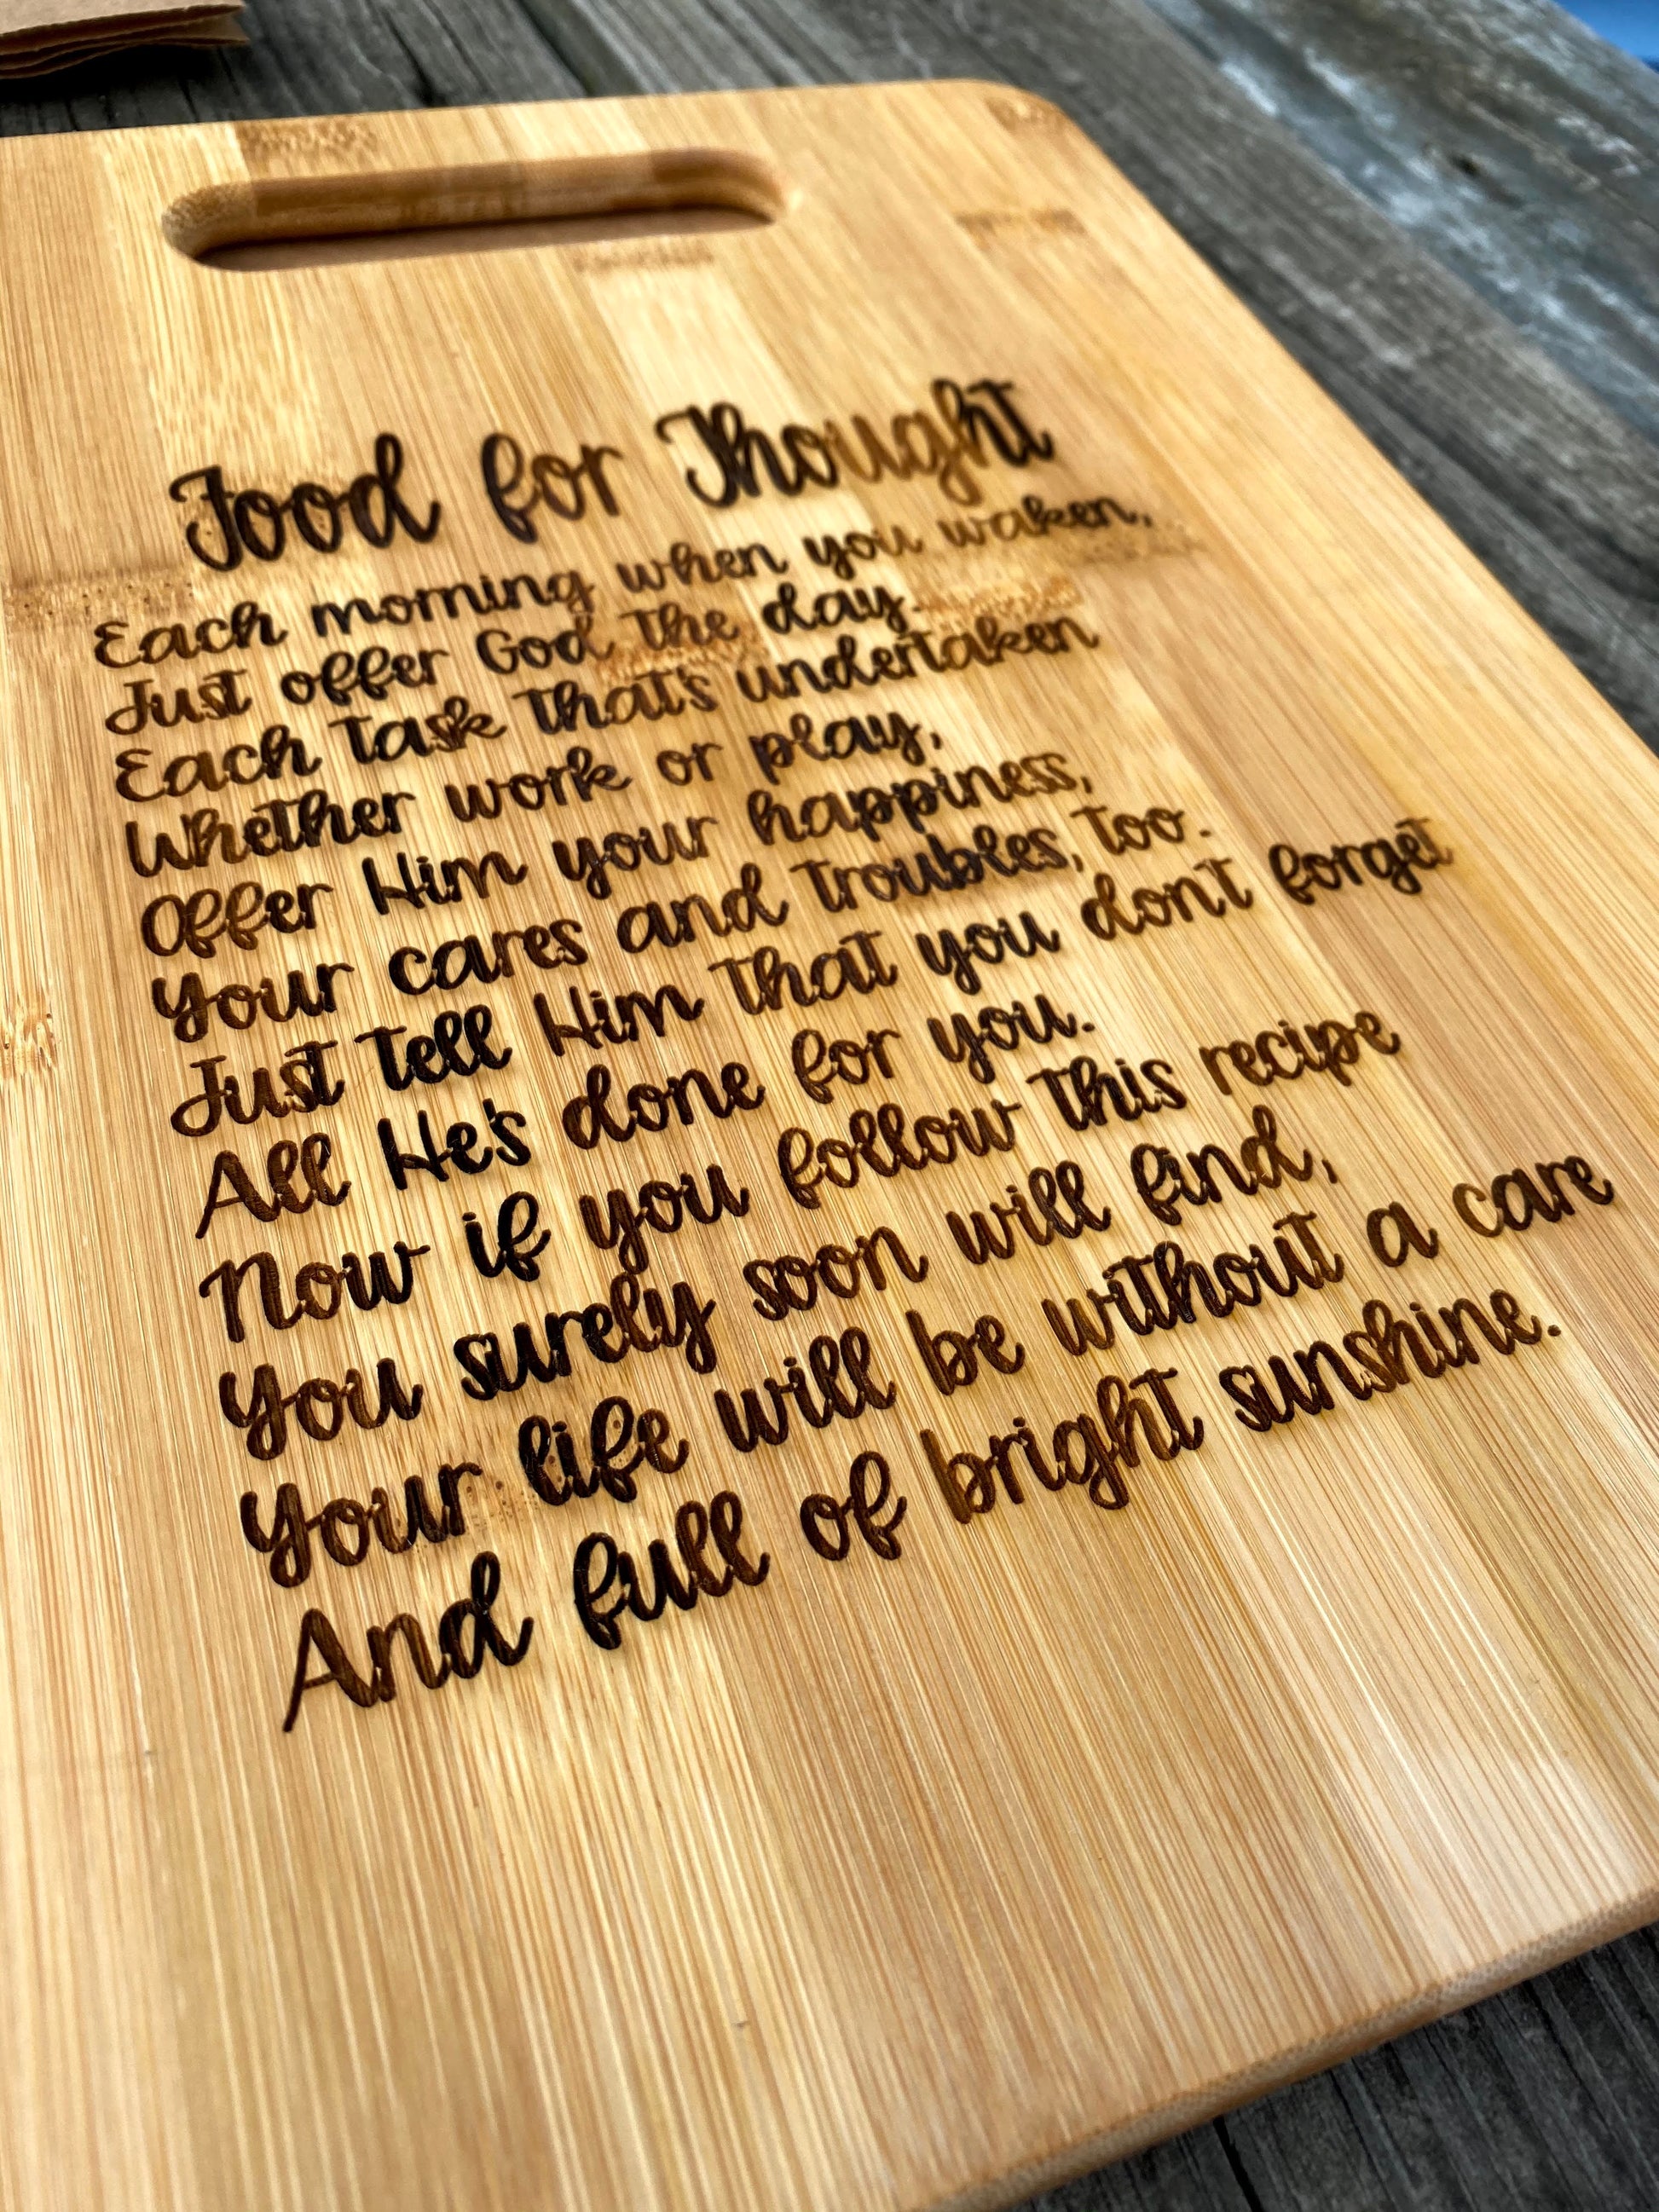 Food for Thought
Each morning when you waken,
Just offer God the day.
Each task that's undertaken
Whether work or play,
Offer Him your happiness,
Your cares and troubles, too.
Just tell Him that you don't forget
All He's done for you.
Now if you follow this recipe
You surely soon will find,
Your life will be without a care
And full of bright sunshine.